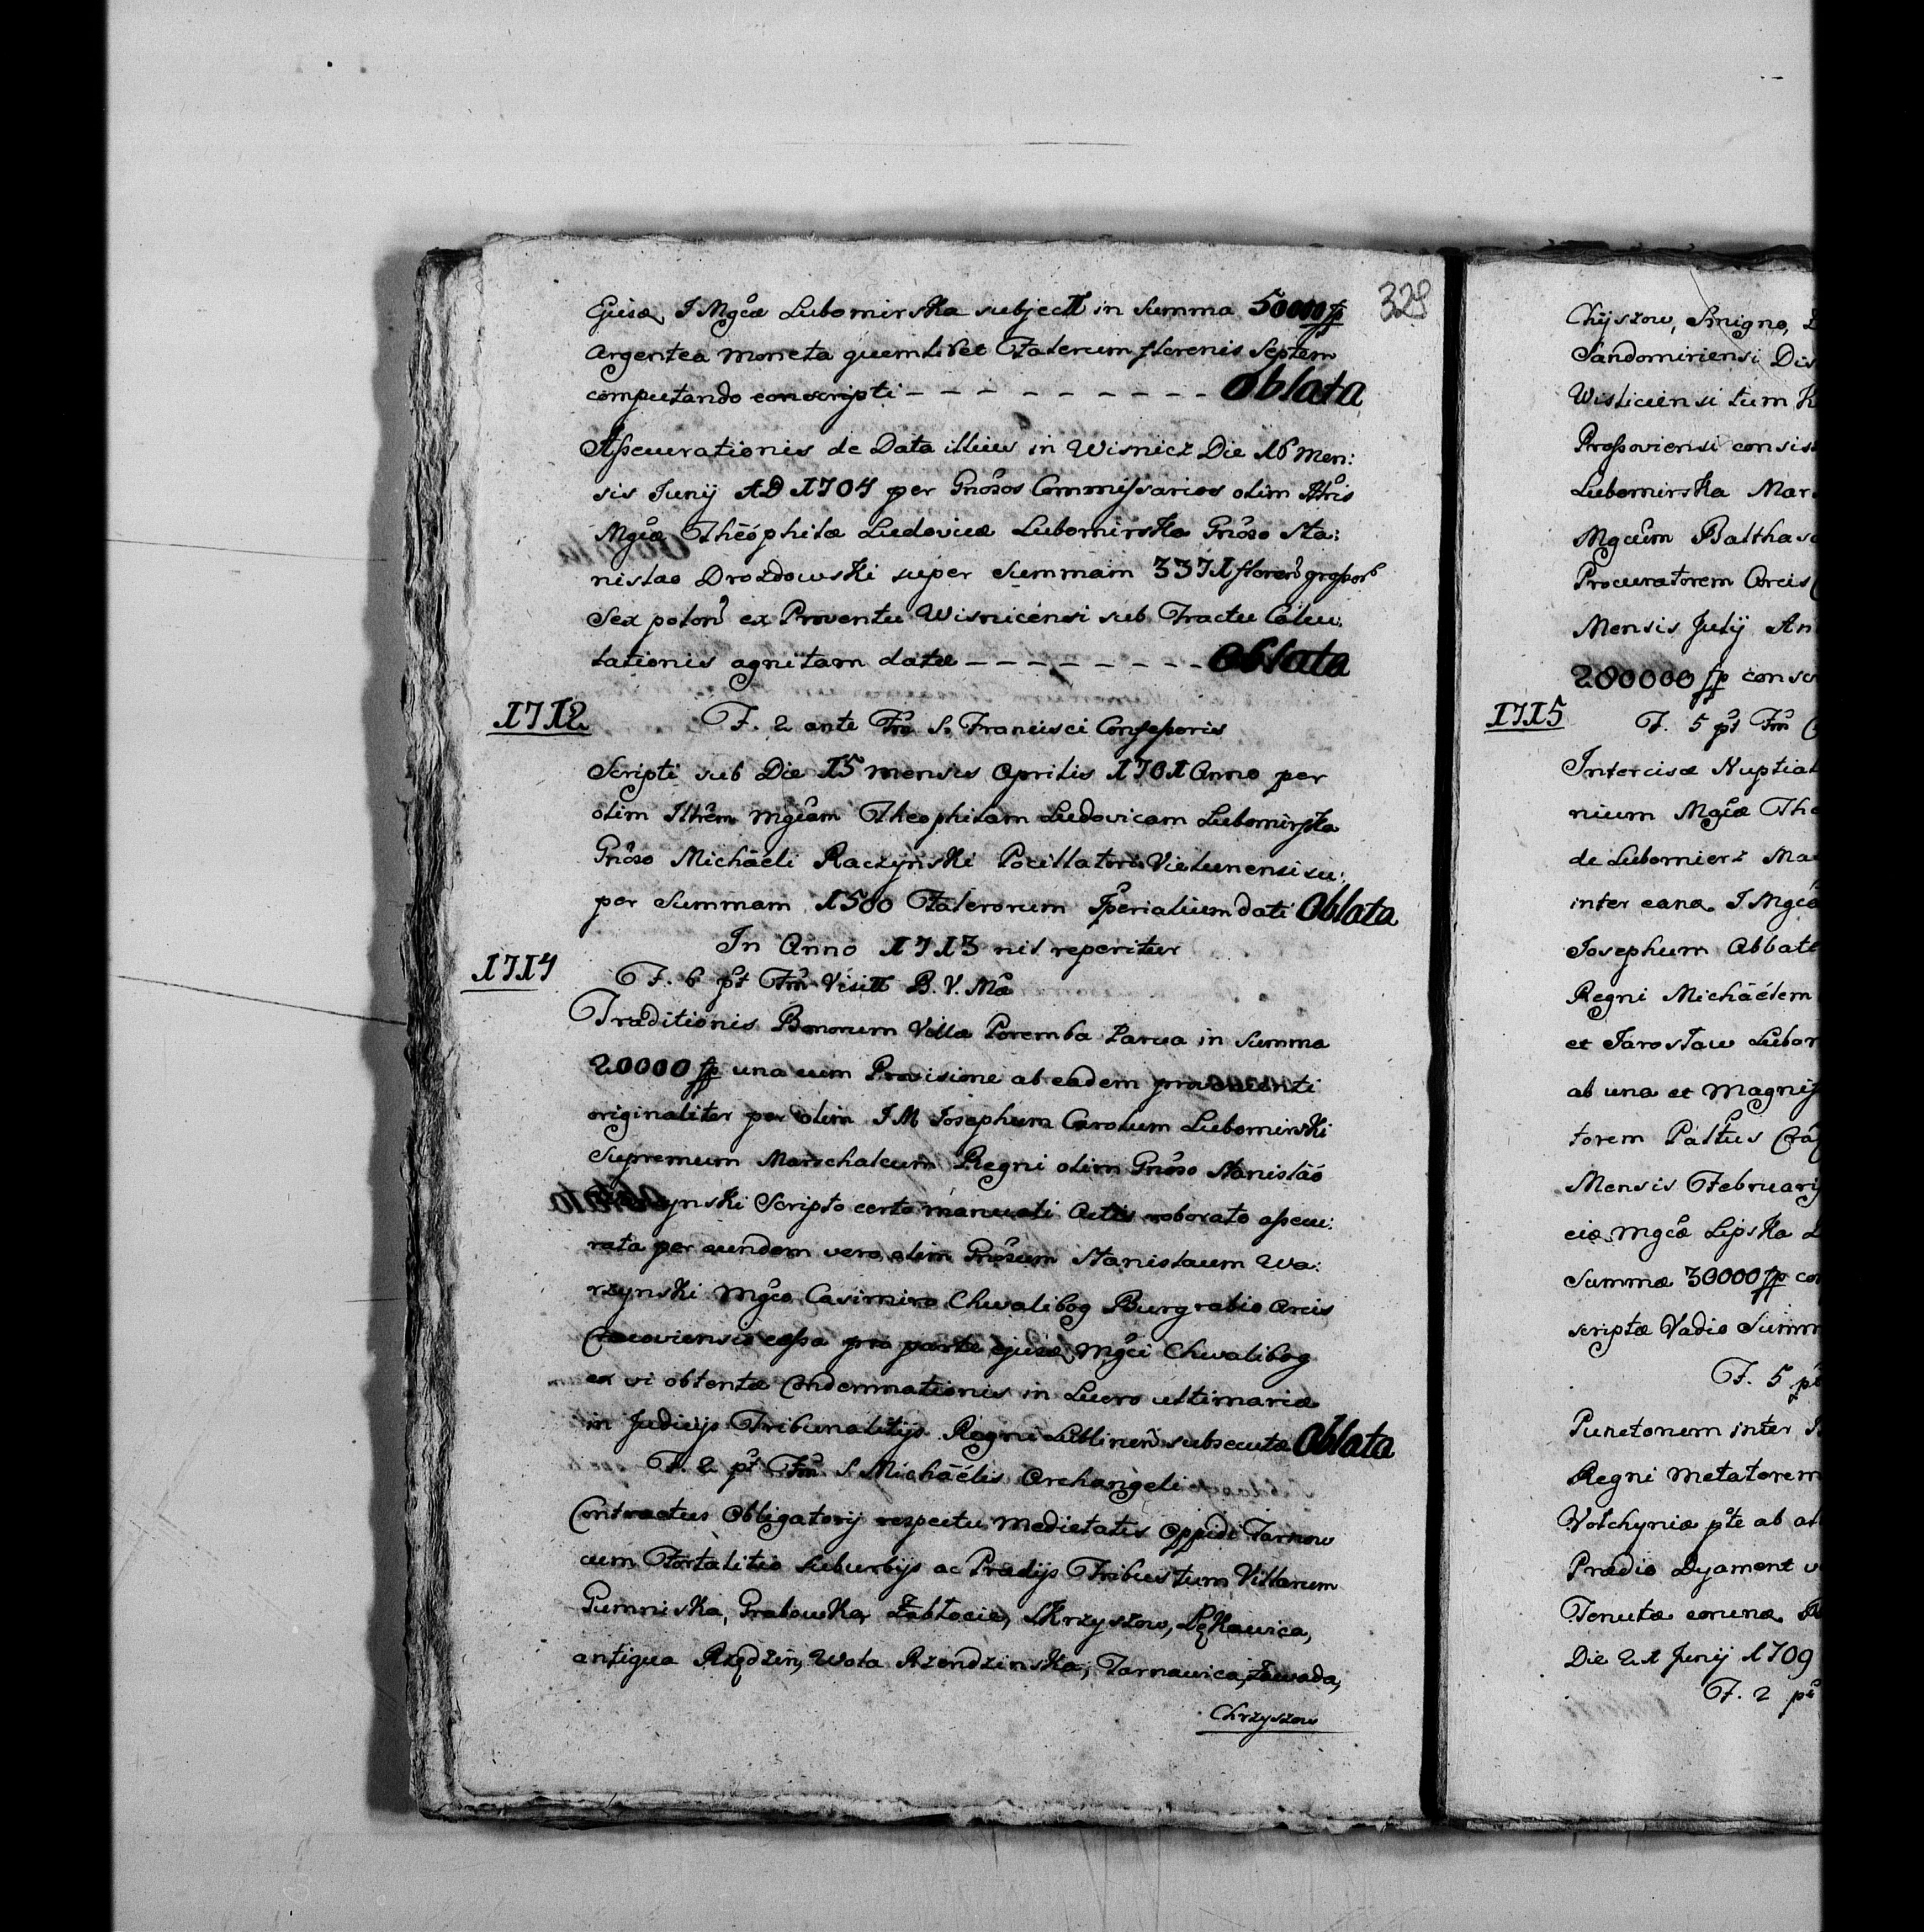 329
Ejusd. I Mgcæ Lubomirska subject in Summa 50000 fp
Argentea Moneta quemlibet Talerum florenis Septem
computando conscripti - - - - - - - - - - Oblata
Assecurationis de Data illius in Wisnicz Die 16 Men:
sis Junij AD 1704 per Gnosos Commissarios olim Illris
Mgcæ Theóphilæ Ludovicæ Lubomirska Gnoso Sta:
nislao Drozdowski super Summam 3371 floren grossor
Sex polon ex Proventu Wisnicensi sub Tractu Calcu:
lationis agnitam datæ - - - - - - - - - Oblata
1712
F. 2 ante Fm S. Francisci Confessoris
Scripti sub Die 15 mensis Aprilis 1701 Anno per
olim Illrem Mgcam Theophilam Ludovicam Lubomirska
Gnoso Michäeli Raczynski Pocillatori Vielunensi su:
per Summam 1500 Talerorum Iperialium dati Oblata
In Anno 1713 nil reperitur
1714
F. 6 pt Fm Visitt B. V. Ma
Traditionis Bonorum Villæ Poremba Parva in Summa
20000 fp una cum Provisione ab eadem provenienti
originaliter per olim I M Josephum Carolum Lubomirski
Supremum Marschalcum Regni olim Gnoso Stanisláo
ynski Scripto certo manuali Actis roborato assecu:
rata per eundem vero olim Gnosum Stanislaum Wa:
rzynski Mgco Casimiro Chwalibog Burgrabio Arcis
Cracoviensis cessa pro parte ejusd. Mgci Chwalibog
ex vi obtentæ Condemnationis in Lucro ultimariæ
in Judicijs Tribunalitijs Regni Lublinen subsecutæ Oblata
F. 2 pt Fm S. Michäélis Archangeli
Contractus Obligatorij respectu Medietatis Oppidi Tarnow
cum Fortalitio Suburbijs ac Prædijs Tribus tum Villarum
Gumniska, Grabowka, Zabłocie, Skrzyszow, Łękawica,
antiqua Rzędzin, Wola Rzendzinska, Tarnawica, Zawada,
Chrzyszow
Chÿszow, Smigno,
Sandomiriensi Dis
Wisliciensi tum
Prossoviensi consis
Lubomirska Mar
Mgcum Balthas
Procuratorem Arcis
Mensis Julij An
200000 fp cons
1715
F. 5 pt Fm
Intercisæ Nuptial
nium Mgcæ The
de Lubomierz Ma
inter eand. I Mgca
Josephum Abbat
Regni Michäélem
et Jaroslaw Lubo
ab una et Magnif
torem Palttus
Mensis February
eis Mgcæ Lipska
Summæ 30000 fp co
scriptæ Vadio Summ
F. 5 pt
Punctorum inter
Regni Metatorem
Volhyniæ pte ab al
Prædio Dyament
Tenutæ eorund.
Die 21 Junij 1709
F. 2 pt